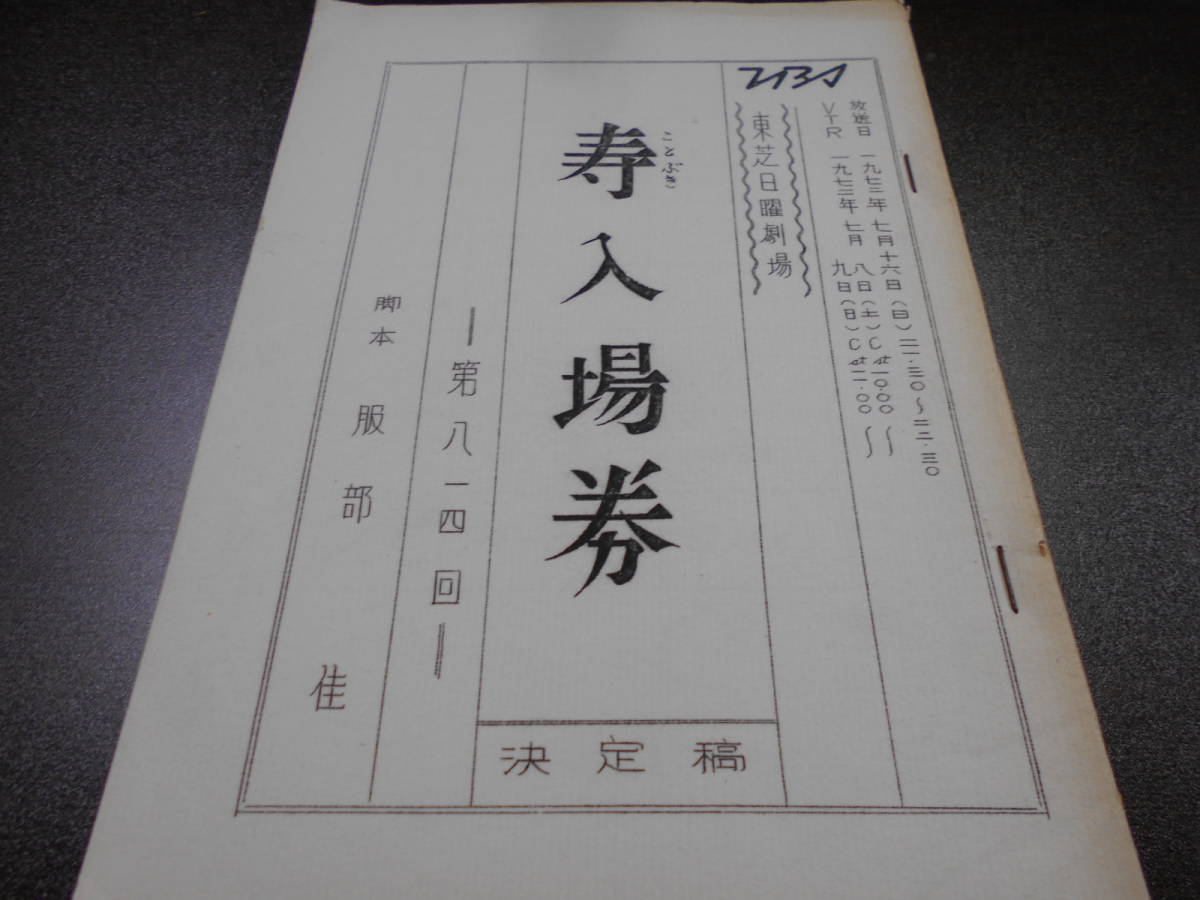 放送日 一九七二年 七月十六日（日）二一・三〇〜二二・三〇
VTR 一九七二年 七月 八日（土）Cst 一〇・〇〇〜
九日（日）Cst 一一・〇〇〜
TBS
東芝日曜劇場
寿入場券
ことぶき
決定稿
―第八一四回―
脚本 服部 佳